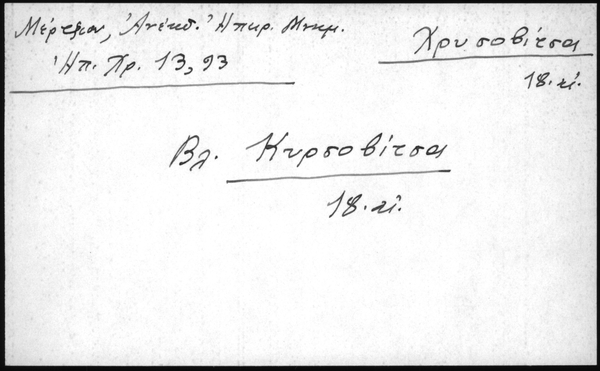 Μέρτζιου, Ἀνέκδ. Ἠπειρ. Μνημ.
Ἠπ. Χρ. 13, 93
Χρυσοβίτσα
18. αἰ.
Βλ. Κυρσοβίτσα
18. αἰ.